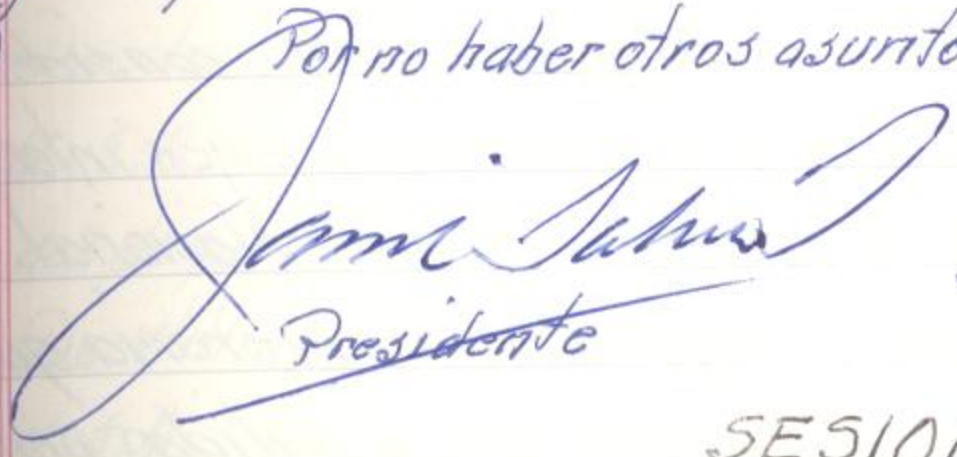 Por no haber otros asunto
Presidente
SESION